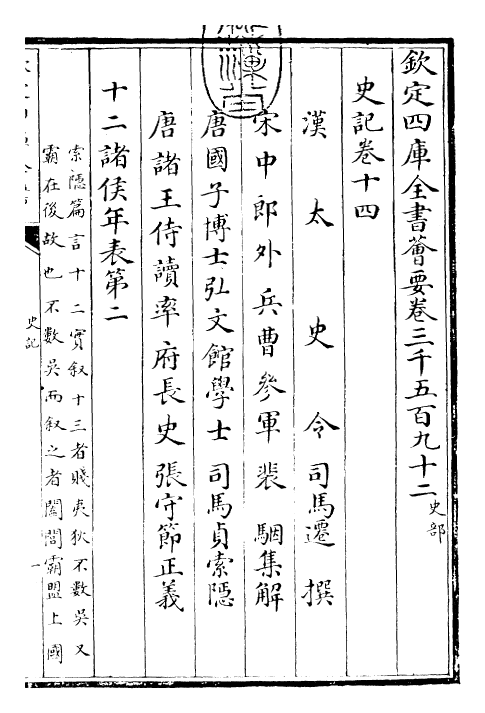 欽定四庫全書薈要卷三千五百九十二史部
史記卷十四
漢太史令司馬遷撰
宋中郎外兵曹參軍裴駰集解
唐國子博士弘文館學士司馬貞索隱
唐諸王侍讀率府長史張守節正義
十二諸侯年表第二
索隱篇言十二實叙十三者賤夷狄不數吳又
霸在後故也不數吳而叙之者闔閭霸盟上國
史記
一